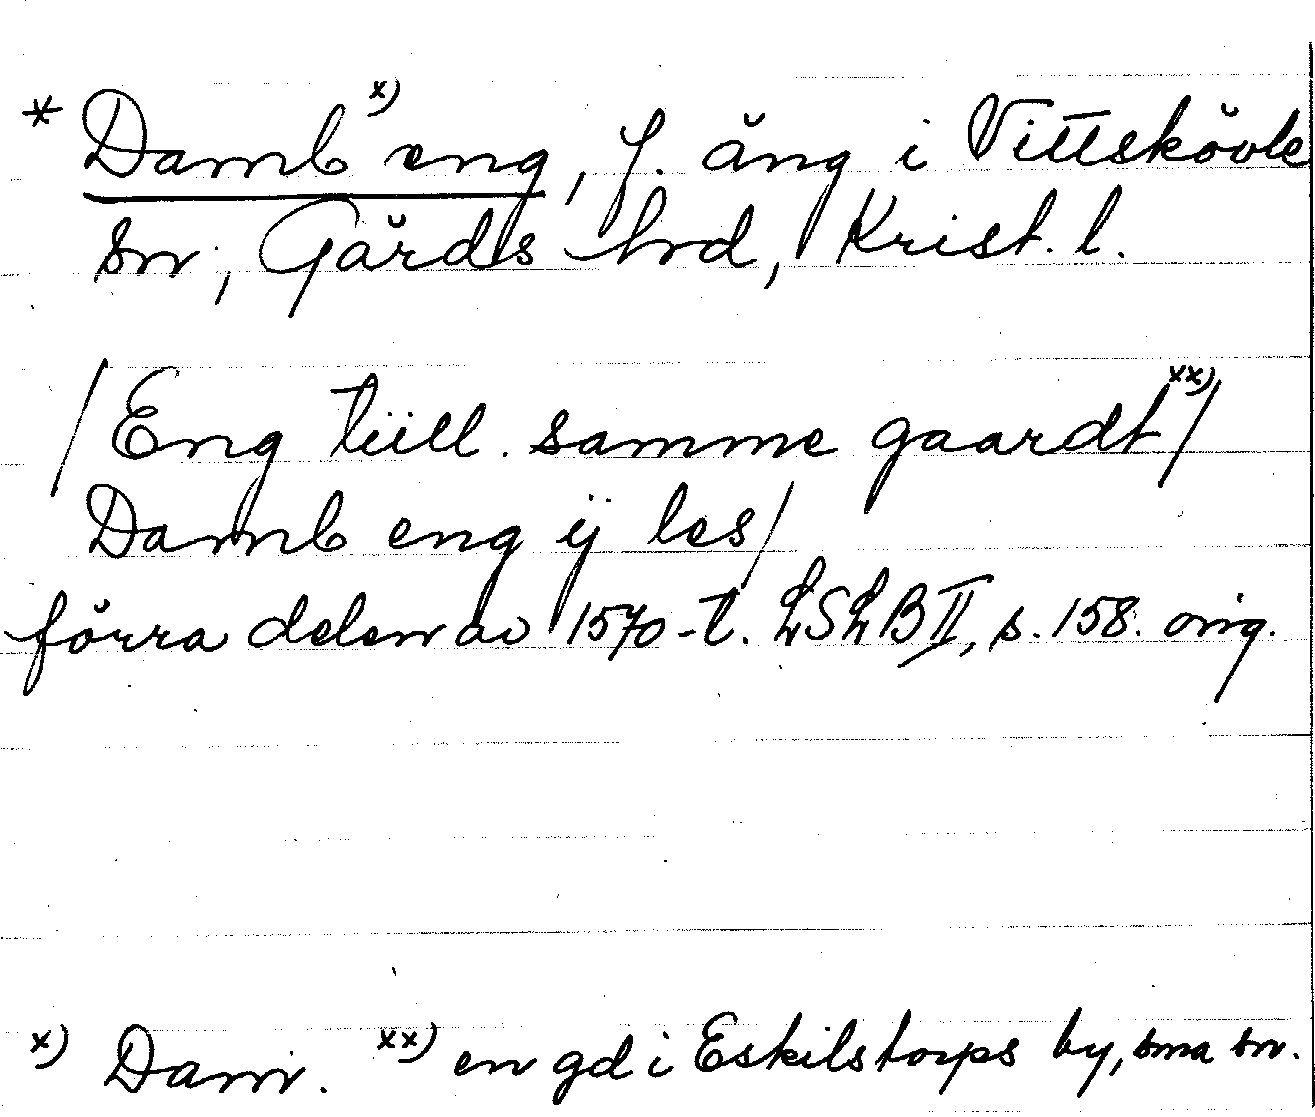 * Damb x) eng, f. äng i Vittskövle
sn, Gärds hrd, Krist. l.
/Eng tiill samme gaardt xx)/
Damb eng ij les/
förra delen av 1570-t. LSLB II, s. 158. orig.
x) Dam. xx) en gd i Eskilstorps by, sma sn.